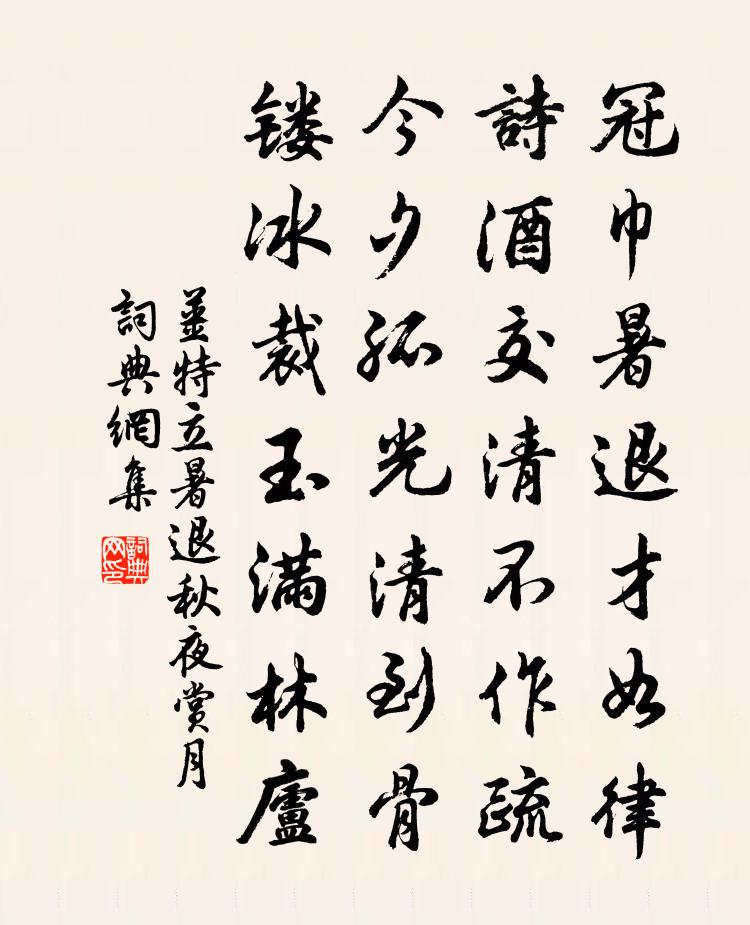 冠巾暑退才如律
詩酒交清不作疏
今夕孤光清到骨
镂冰裁玉满林廬
姜特立暑退秋夜赏月
詞典網集
詞典网印